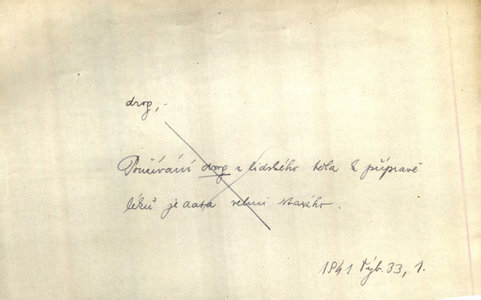 drog,-
Používání drog z lidského těla k přípravě
léků je data velmi starého.
1941 Výb. 33, 1.